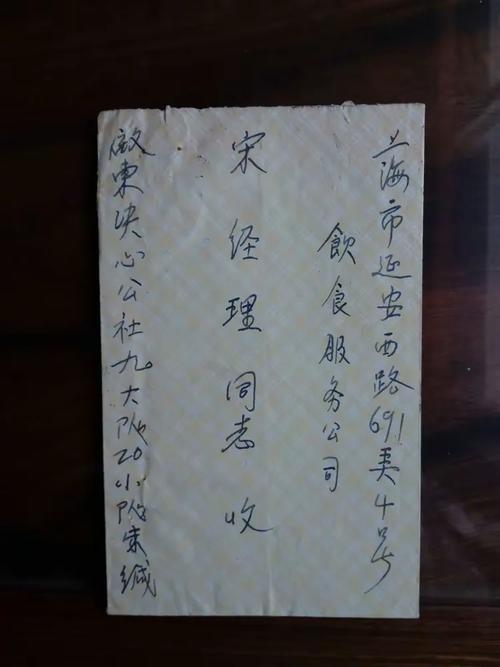 上海市延安西路691弄4号
飲食服务公司
宋经理同志收
启东决心公社九大队20小队宋缄